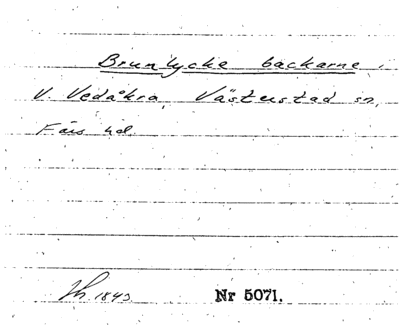 Brunlycke backarne.
V. Vedåkra, Västerstad sn,
Färs hd.
Sk. 1843 Nr 5071.